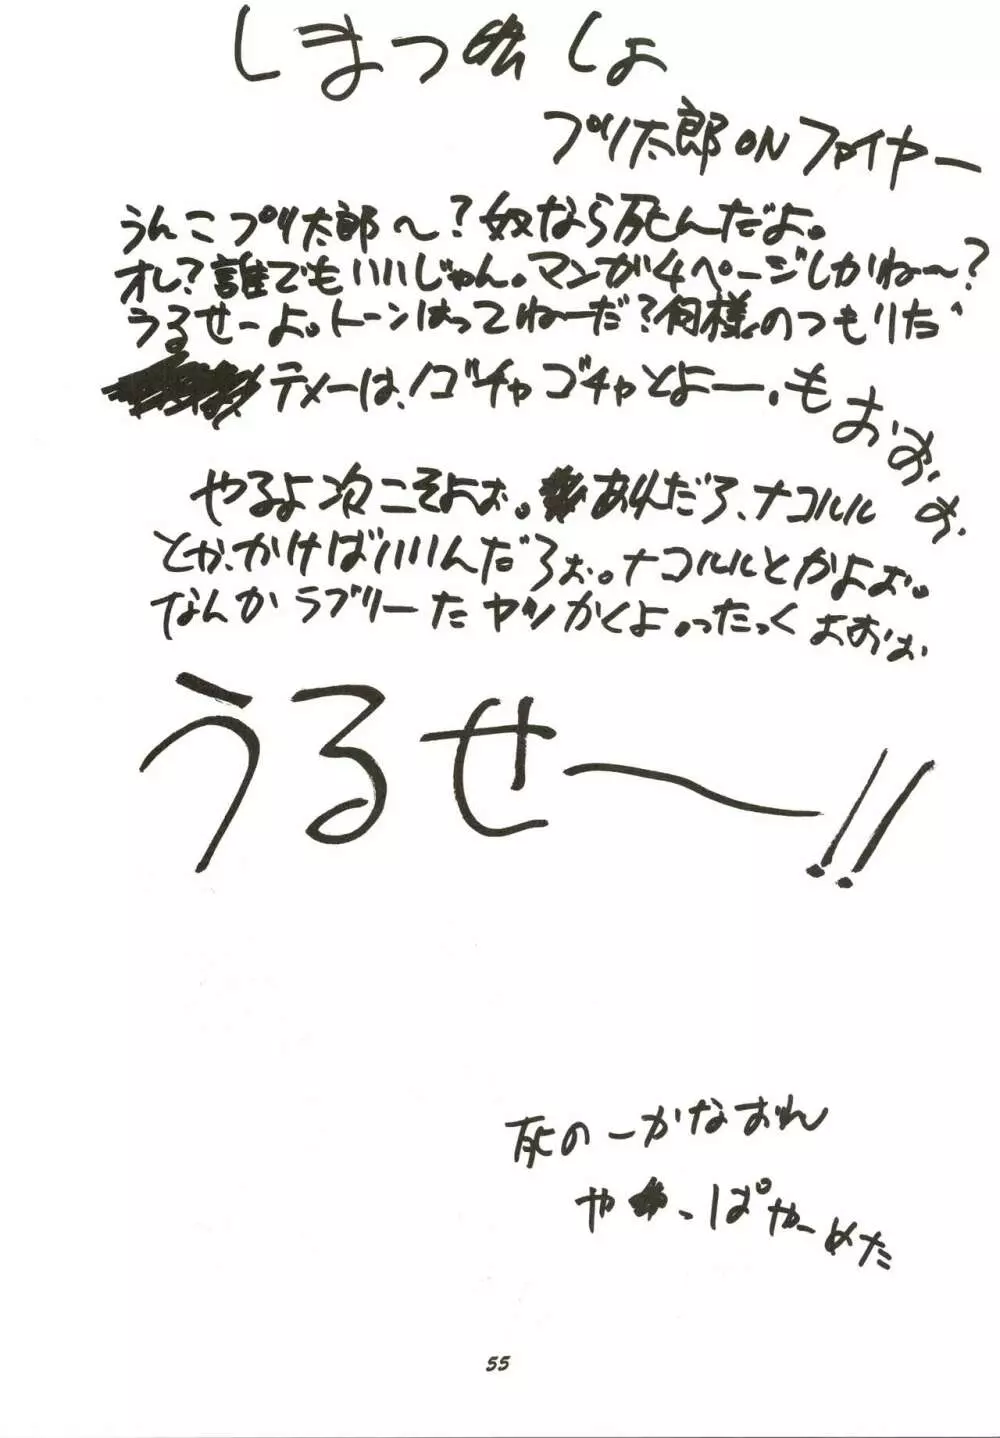 しまつしょ
プリ太郎ONファイヤー
うんこプリ太郎〜?奴なら死んだよ。
オレ?誰でもいいじゃん。マンガ4ページしかね〜?
うるせーよ。トーンはってねーだ?何様のつもりだ
テメーは、ゴチャゴチャとよー。もおおお
やるよ次こそよぉ。あれだろ、ナコルル
とか、かけばいいんだろぉ。ナコルルとかよぉ。
なんかラブリーなヤツかくよ。ったっくよおおぉ
うるせー!!
死のーかなおれ
やっぱやーめた
55